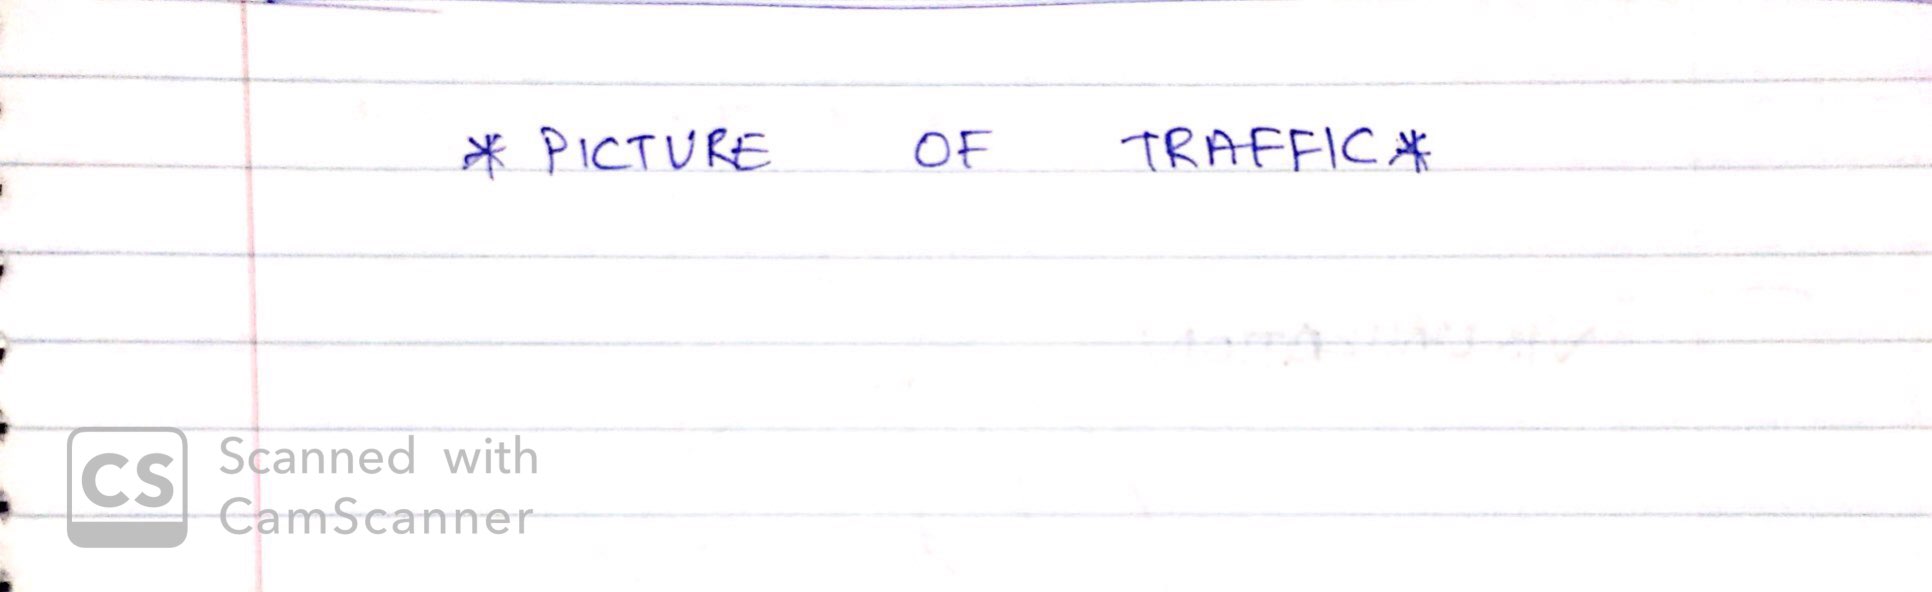 * PICTURE OF TRAFFIC*
CS Scanned with
CamScanner